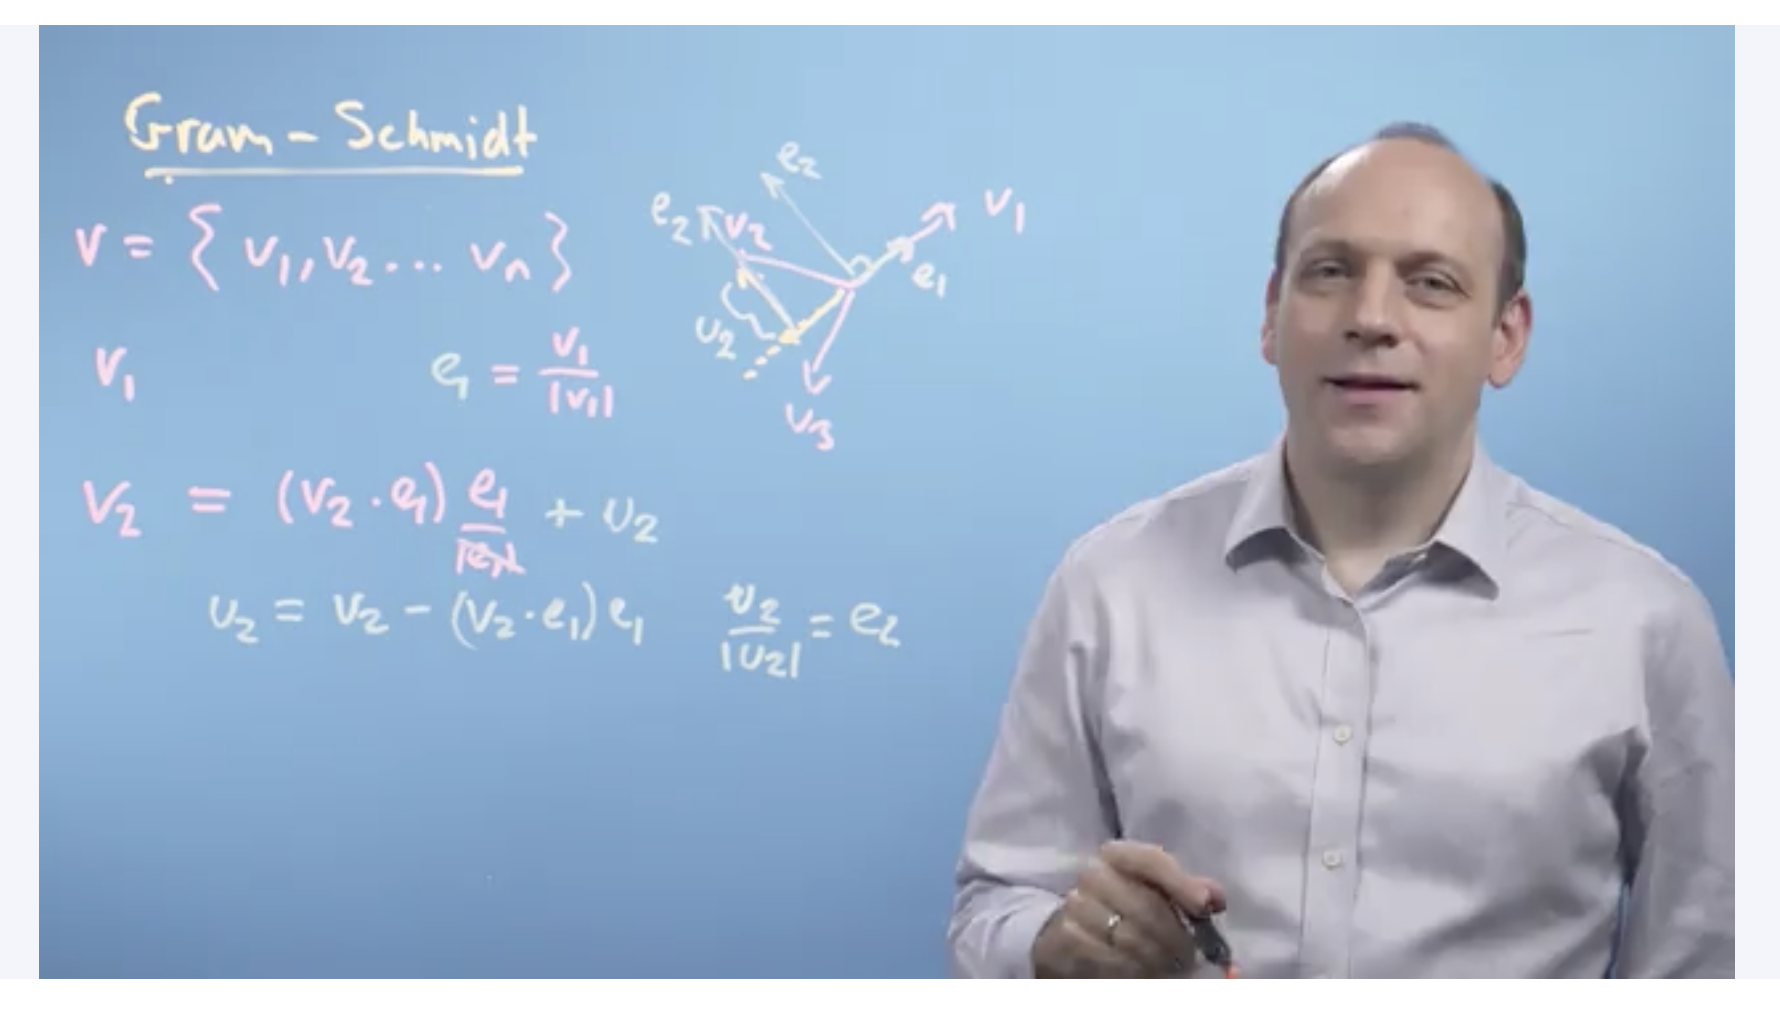 Gram - Schmidt
V = { V1, V2 ... Vn }
V1
e1 = V1 / |V1|
V2 = (V2 · e1) e1 / |e1| + U2
U2 = V2 - (V2 · e1) e1
U2 / |U2| = e2
e2
e2
V2
V1
e1
U2
V3